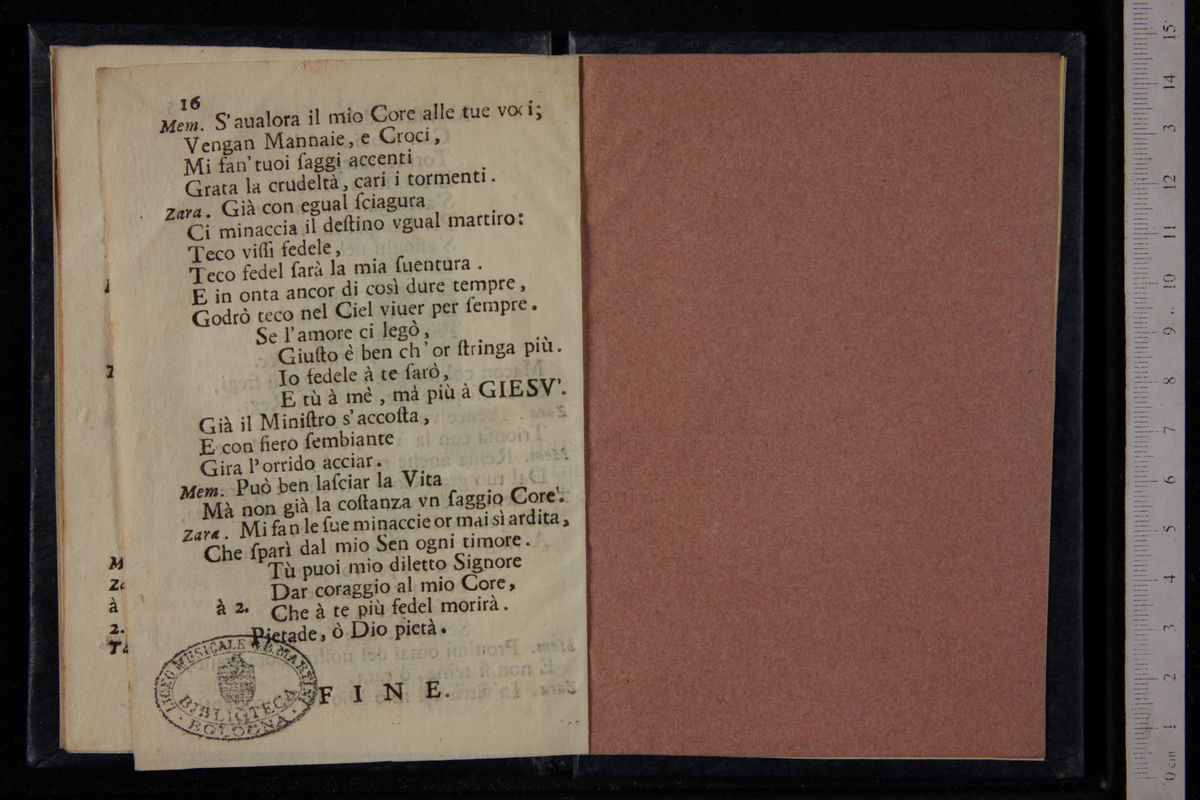 16
Mem. S'aualora il mio Core alle tue voci;
Vengan Mannaie, e Croci,
Mi fan' tuoi ſaggi accenti
Grata la crudeltà, cari i tormenti.
Zara. Già con egual ſciagura
Ci minaccia il deſtino vgual martiro:
Teco viſſi fedele,
Teco fedel ſarà la mia ſuentura.
E in onta ancor di così dure tempre,
Godrò teco nel Ciel viuer per ſempre.
Se l'amore ci legò,
Giuſto è ben ch'or ſtringa più.
Io fedele à te ſarò,
E tù à mè, mà più à GIESV'.
Già il Miniſtro s'accoſta,
E con fiero ſembiante
Gira l'orrido acciar.
Mem. Può ben laſciar la Vita
Mà non già la coſtanza vn ſaggio Core'.
Zara. Mi fan le ſue minaccie or mai sì ardita,
Che ſparì dal mio Sen ogni timore.
Tù puoi mio diletto Signore
Dar coraggio al mio Core,
à 2. Che à te più fedel morirà.
Pietade, ò Dio pietà.
FINE.
LICEO MUSICALE G.B. MARTINI
BIBLIOTECA
BOLOGNA
M
Za
à
2.
0 cm 1 2 3 4 5 6 7 8 9 10 11 12 3 14 15